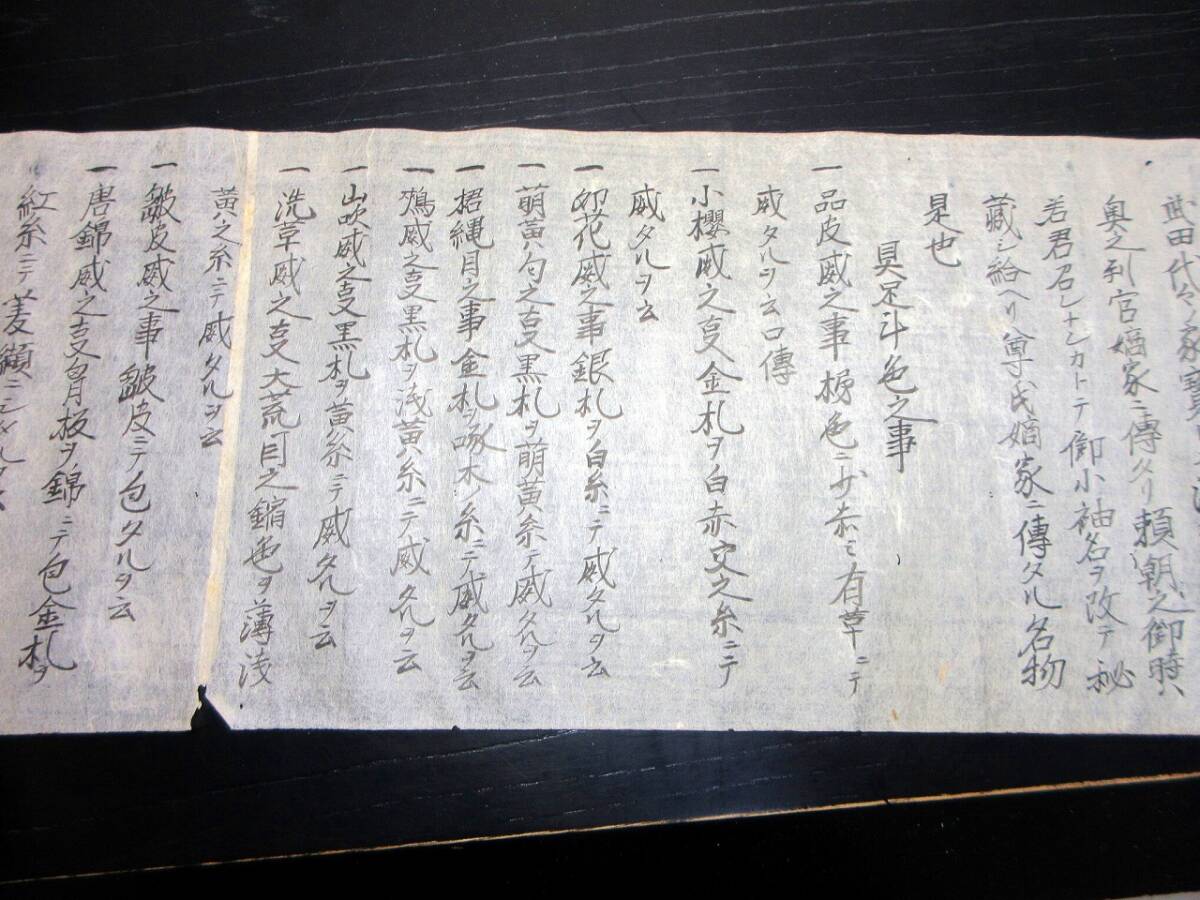 武田代々
奥之判官嫡家ニ傳タリ頼朝之御時ハ
若君召レナシカトテ御小袖名ヲ改テ秘
藏シ給ヘリ尊氏嫡家ニ傳タル名物
是也
具足斗色之事
一品皮威之事 色ニ少赤ミ有革ニテ
威タルヲ云口傳
一小櫻威之事金札ヲ白赤交之糸ニテ
威タルヲ云
一卯花威之事銀札ヲ白糸ニテ威タルヲ云
一萌黄匂之事黒札ヲ萌黄糸テ威タルヲ云
一椦縄目之事金札ヲ啄木ノ糸ニテ威タルヲ云
一鵄威之事黒札ヲ浅黄糸ニテ威タルヲ云
一山吹威之事黒札ヲ黄糸ニテ威タルヲ云
一洗草威之事大荒目之鎧色ヲ薄浅
黄之糸ニテ威タルヲ云
一皺皮威之事皺皮ニテ包タルヲ云
一唐錦威之事背板ヲ錦ニテ包金札ヲ
紅糸ニテ菱